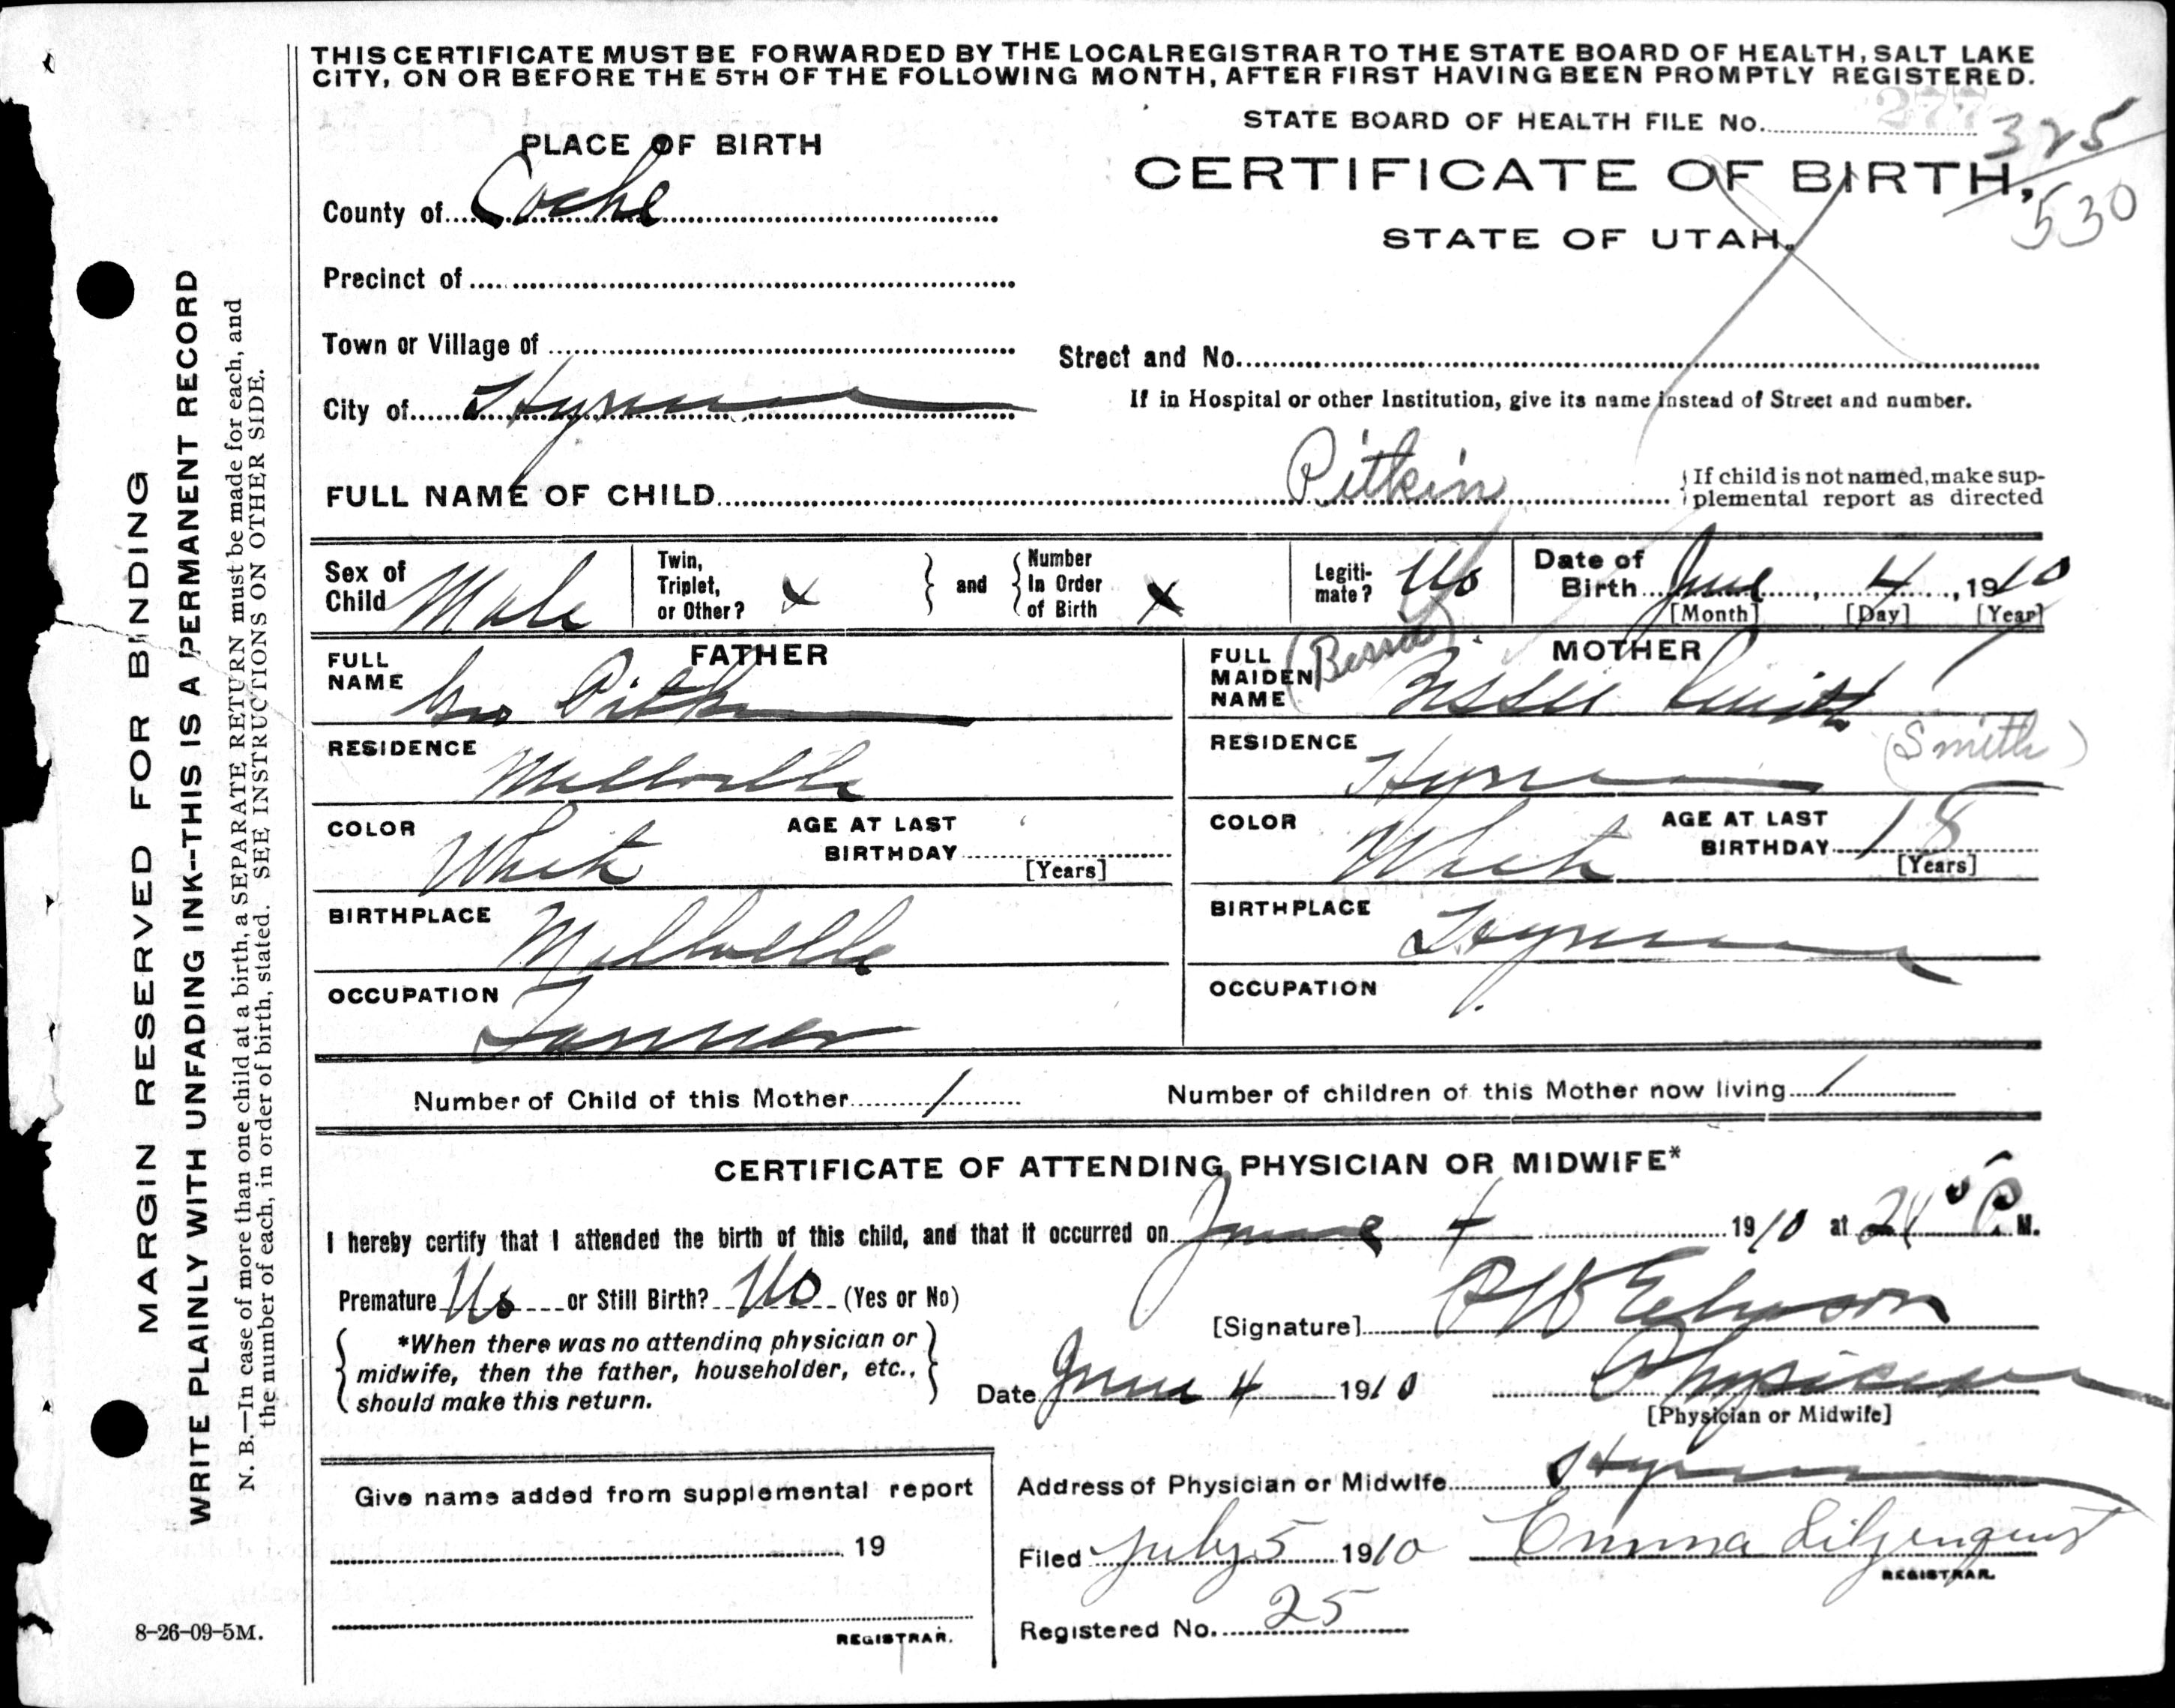 THIS CERTIFICATE MUST BE FORWARDED BY THE LOCAL REGISTRAR TO THE STATE BOARD OF HEALTH, SALT LAKE
CITY, ON OR BEFORE THE 5TH OF THE FOLLOWING MONTH, AFTER FIRST HAVING BEEN PROMPTLY REGISTERED.
STATE BOARD OF HEALTH FILE No. 277
325
530
PLACE OF BIRTH
CERTIFICATE OF BIRTH,
STATE OF UTAH.
County of Cache
Precinct of
Town or Village of
Street and No.
City of Hyrum
If in Hospital or other Institution, give its name instead of Street and number.
FULL NAME OF CHILD Pitkin
If child is not named, make sup-
plemental report as directed
Sex of Child Male
Twin, Triplet, or Other? X
and
Number In Order of Birth X
Legiti-mate? No
Date of Birth June 4, 1910
[Month] [Day] [Year]
FATHER
FULL NAME Geo Pitkin
RESIDENCE Millville
COLOR White
AGE AT LAST BIRTHDAY
[Years]
BIRTHPLACE Millville
OCCUPATION Farmer
MOTHER
FULL MAIDEN NAME (Bessie) Smith
(Smith)
RESIDENCE Hyrum
COLOR White
AGE AT LAST BIRTHDAY 18
[Years]
BIRTHPLACE Hyrum
OCCUPATION
Number of Child of this Mother 1
Number of children of this Mother now living 1
CERTIFICATE OF ATTENDING PHYSICIAN OR MIDWIFE*
I hereby certify that I attended the birth of this child, and that it occurred on June 4 1910 at P. M.
Premature No or Still Birth? No (Yes or No)
*When there was no attending physician or
midwife, then the father, householder, etc.,
should make this return.
[Signature]
Date June 4 1910
Physician
[Physician or Midwife]
Give name added from supplemental report
19
REGISTRAR.
Address of Physician or Midwife Hyrum
Filed July 5 1910 Emma Liljenquist
REGISTRAR.
Registered No. 25
MARGIN RESERVED FOR BINDING
WRITE PLAINLY WITH UNFADING INK--THIS IS A PERMANENT RECORD
N. B.—In case of more than one child at a birth, a SEPARATE RETURN must be made for each, and
the number of each, in order of birth, stated. SEE INSTRUCTIONS ON OTHER SIDE.
8-26-09-5M.